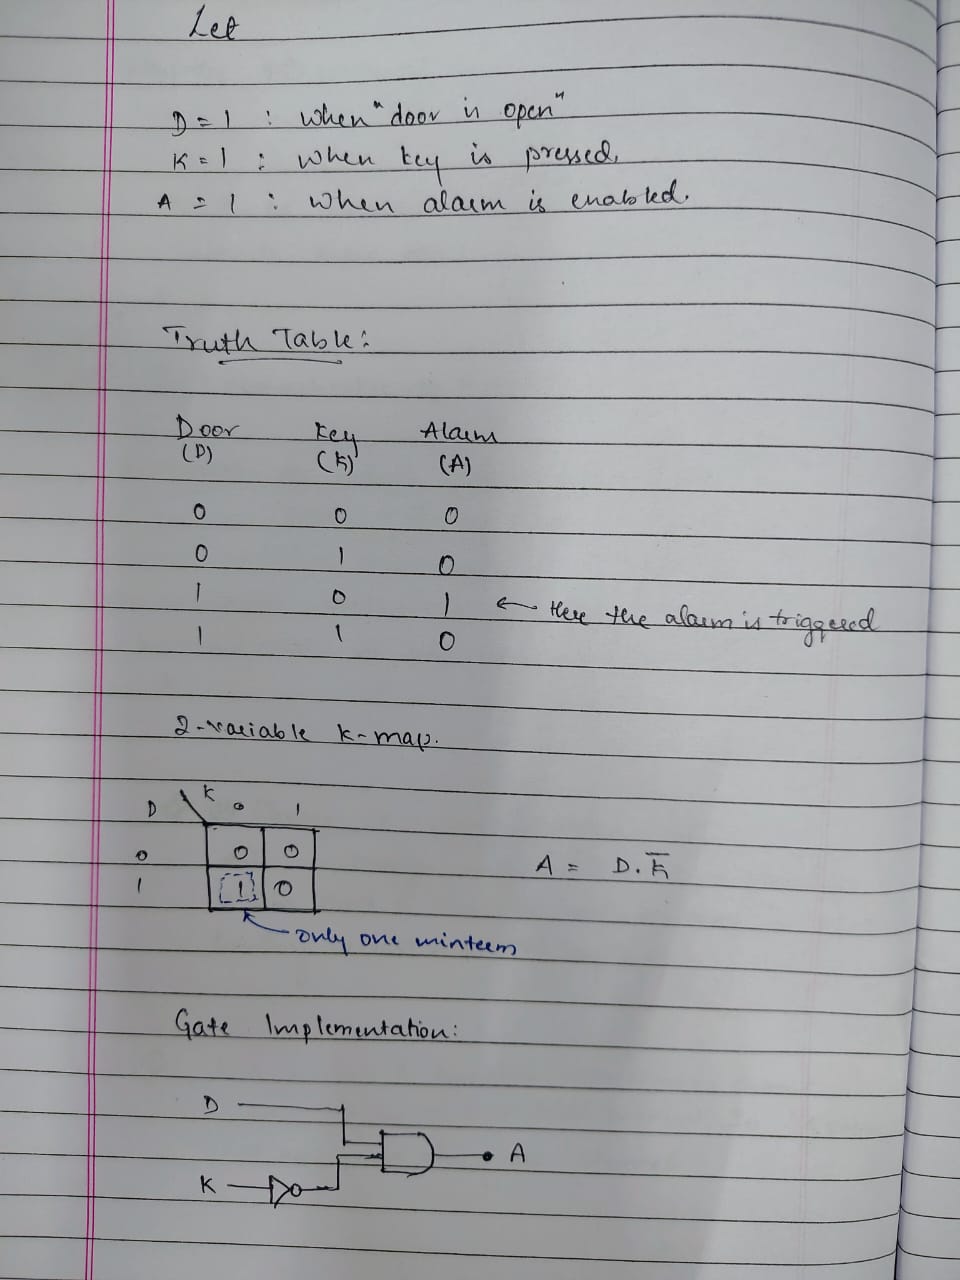 Let
D = 1 : when "door is open"
K = 1 : when key is pressed,
A = 1 : when alarm is enabled.
Truth Table:
Door Key Alarm
(D) (K) (A)
0 0 0
0 1 0
1 0 1 ← Here the alarm is triggered
1 1 0
2-variable k-map.
D \ K 0 1
0 0 0
1 1 0
A = D.K̅
only one minterm
Gate Implementation:
D
A
K